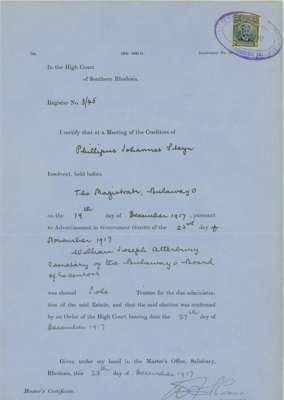 No.
In the High Court
of Southern Rhodesia.
Register No. 8/45
I certify that at a Meeting of the Creditors of
Phillipus Johannes
Insolvent, held before
The Magistrate, Bulawayo
on the 14th day of December 1917, pursuant
to Advertisement in Government Gazette of the 23rd day of
November 1917
William Joseph Atterbury
Secretary of the Bulawayo Board
of Executors
was elected Sole Trustee for the due administra-
tion of the said Estate, and that the said election was confirmed
by an Order of the High Court bearing date the 27th day of
December 1917
Given under my hand in the Master's Office, Salisbury,
Rhodesia, this 28th day of December 1917
Master's Certificate.